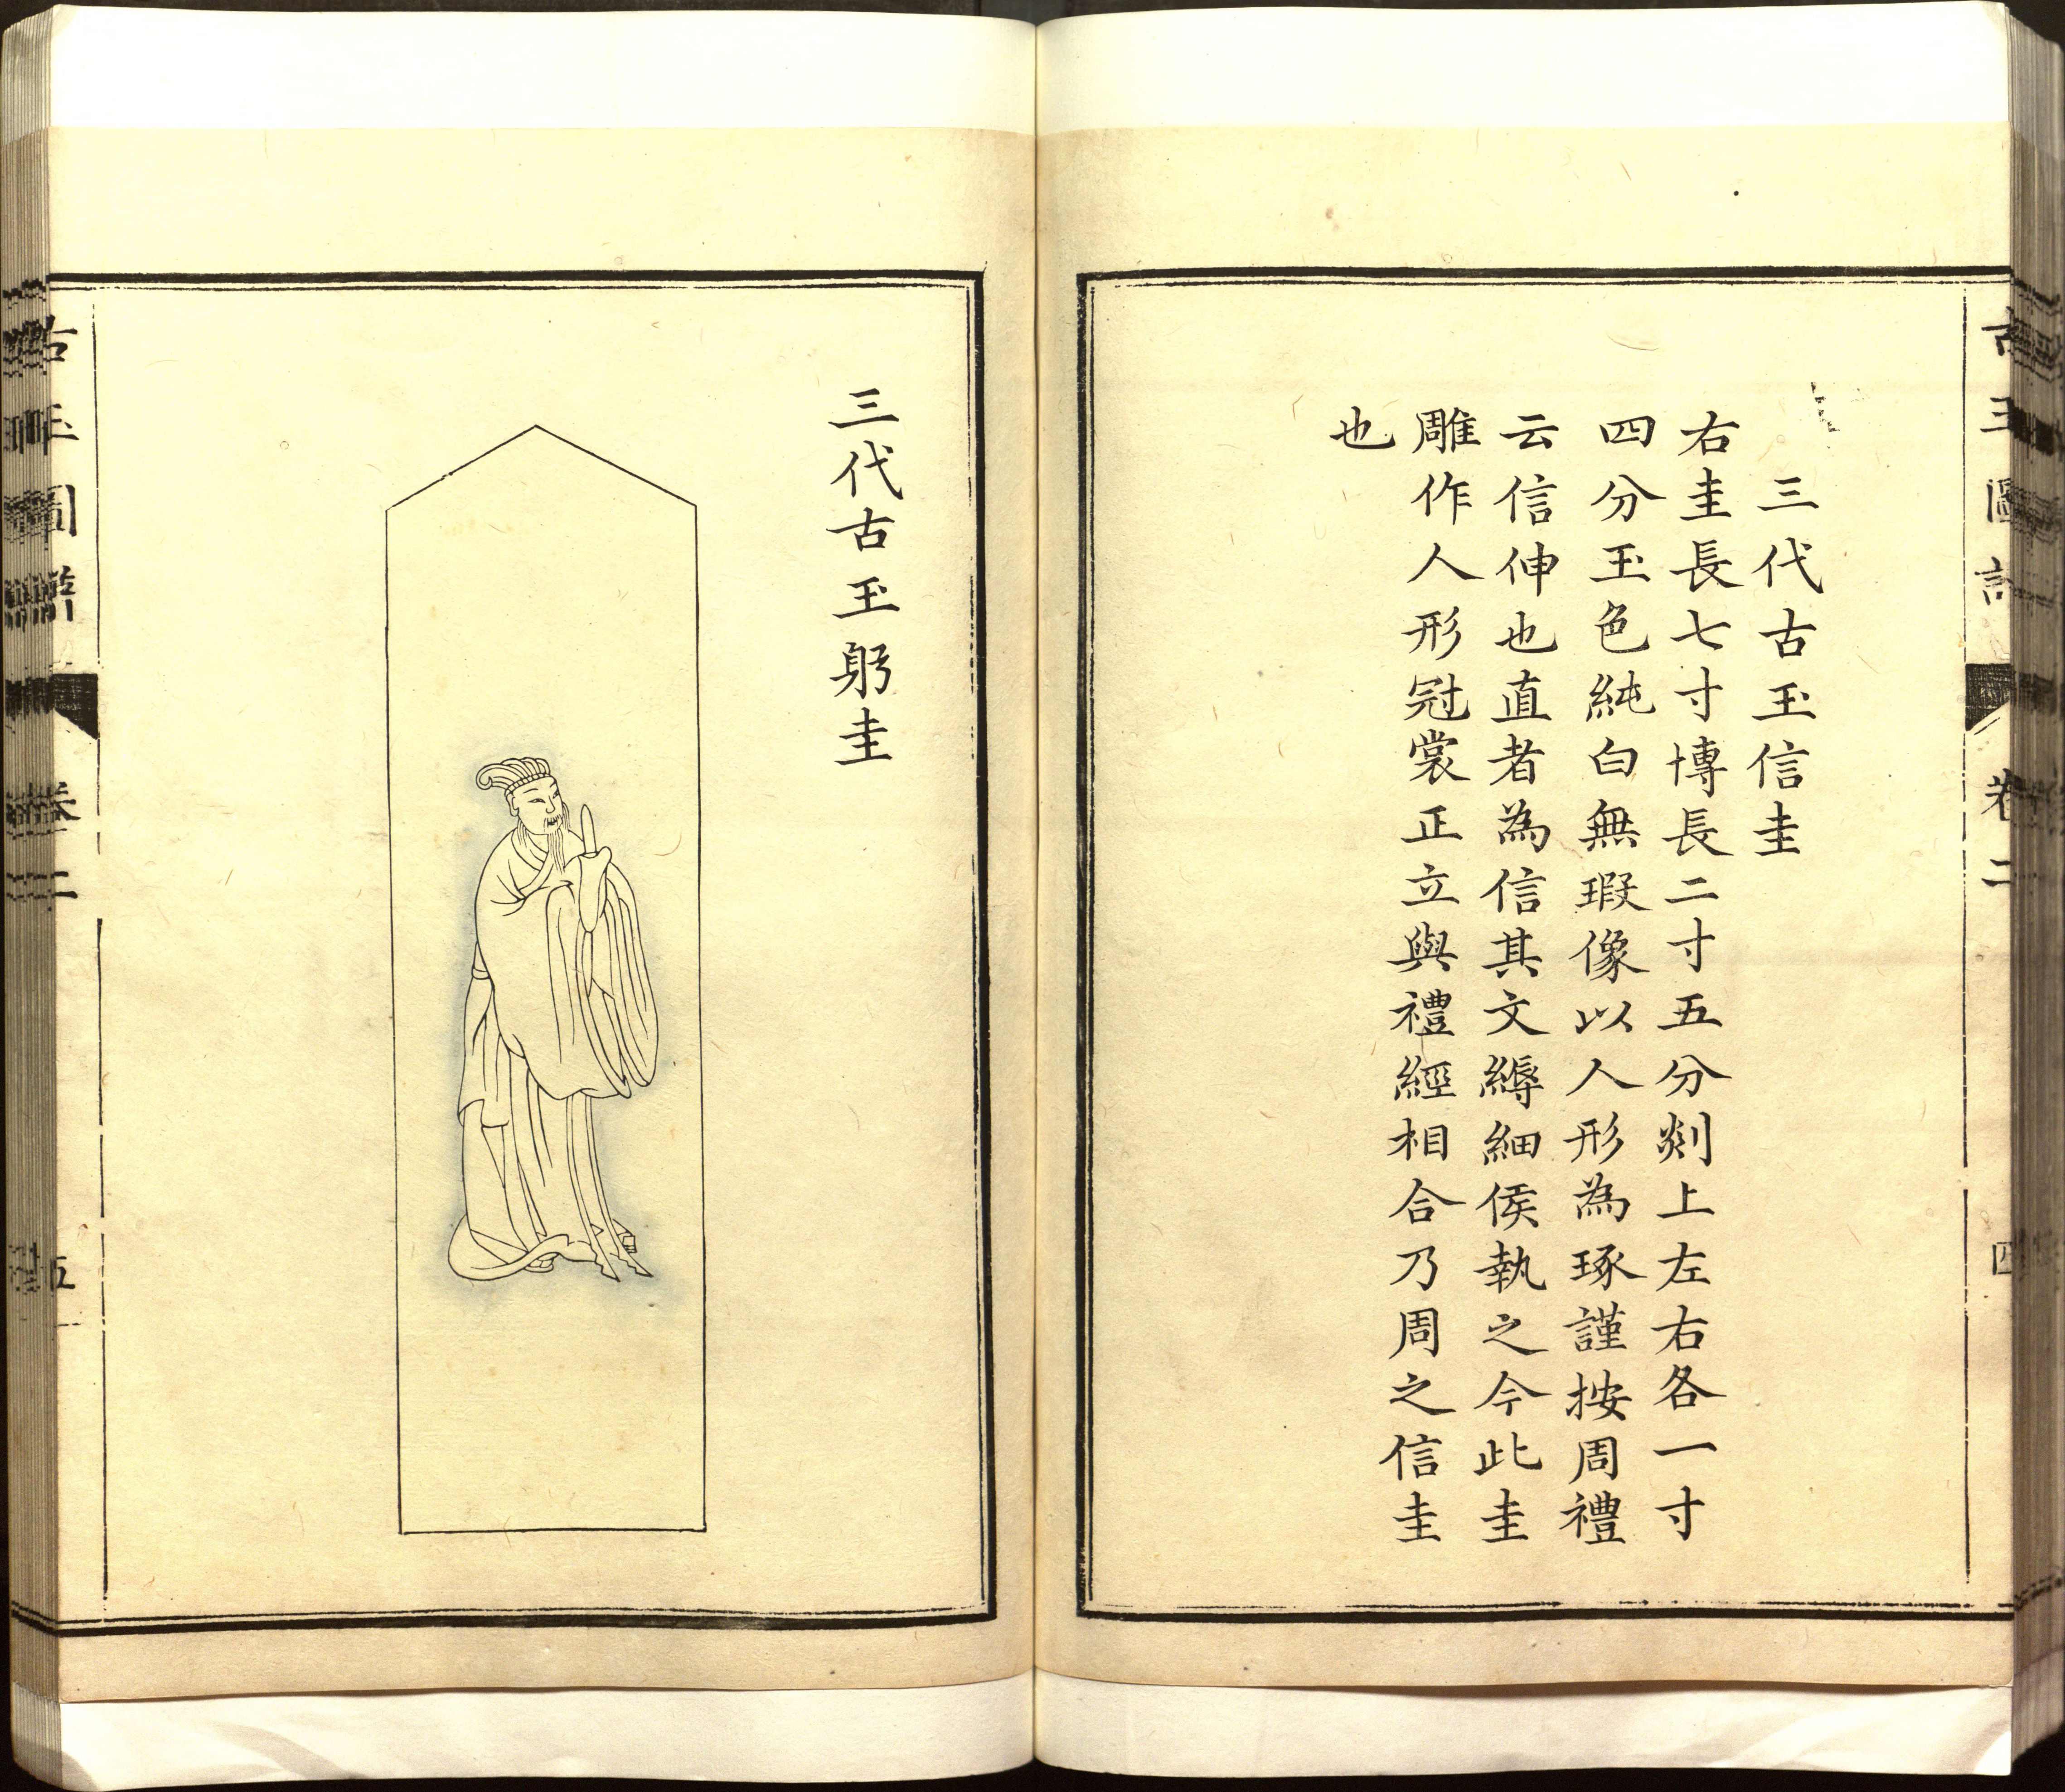 三代古玉信圭
右圭長七寸博長二寸五分剡上左右各一寸
四分玉色純白無瑕像以人形為琢謹按周禮
云信伸也直者為信其文縟細侯執之今此圭
雕作人形冠裳正立與禮經相合乃周之信圭
也
卷二
四
三代古玉躬圭
古玉圖譜
卷二
五